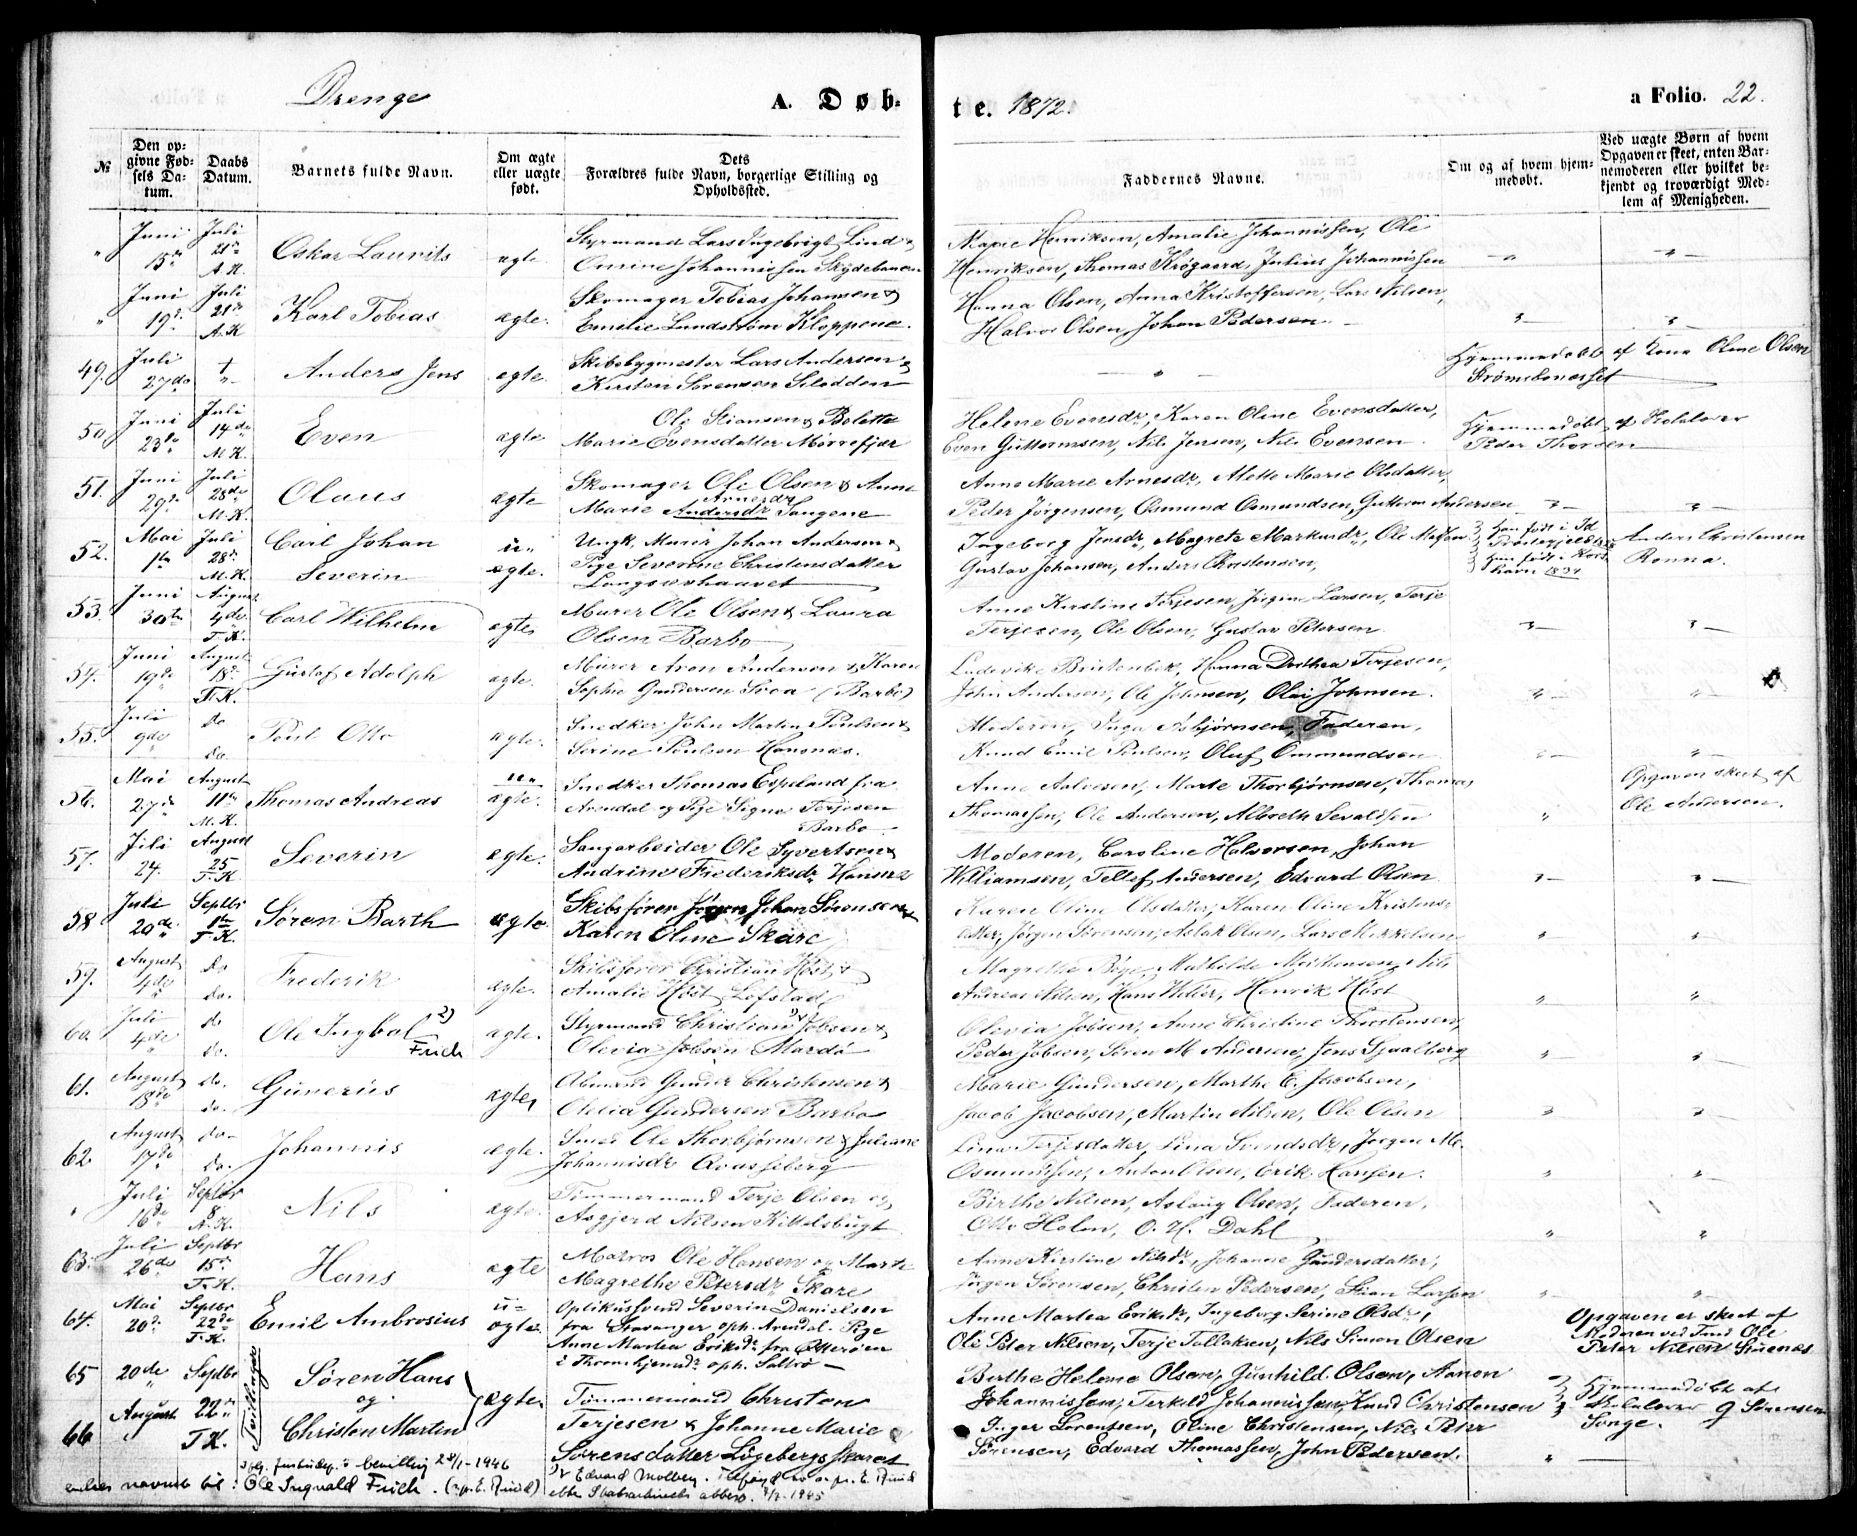 Drenge
A. Døb-
te. 1872.
a Folio. 22.
№
Den op-
givne Fød-
sels Da-
tum.
Daabs
Datum.
Barnets fulde Navn.
Om ægte
eller uægte
født.
Dets
Forældres fulde Navn, borgerlige Stilling og
Opholdssted.
Faddernes Navne.
Om og af hvem hjem-
medøbt.
Ved uægte Børn af hvem
Opgaven er skeet, enten Bar-
nemoderen eller hvilket be-
kjendt og troværdigt Med-
lem af Menigheden.
" Juni 15de Juli 21de A.K. Oskar Laurits ægte. Styrmand Lars Ingebrigt Lind &
Omine Johannesen Skydebanen
Marie Henriksen, Amalie Johannissen, Ole
Henriksen, Thomas Krøgaard, Julius Johannissen
" Juni 19de Juli 21de A.K. Karl Tobias ægte. Skomager Tobias Johansen &
Emilie Lundstrøm Kloppene.
Hanna Olsen, Anna Kristoffersen, Lars Nilsen,
Halvor Olsen, Johan Pedersen
49. Juli 27de † Anders Jens ægte. Skibsbygmester Lars Andersen &
Kirsten Sørensen Slodden
Hjemmedøbt af Kone Oline Olsen
Strømsbuneset
50. Juni 23de Juli 14de M.K. Even ægte Ole Stiansen & Bolette
Marie Evensdatter Mørrefjær
Helene Evensdr, Karen Oline Evensdatter,
Even Guttormsen, Nils Jensen, Nils Evensen
Hjemmedøbt af Skolelærer
Peder Thorsen
51. Juni 29de Juli 28de M.K. Olaus ægte Skomager Ole Olsen & Anne
Arnesdr
Marie Andersdr Tangene
Anne Marie Arnesdr, Alette Marie Olsdatter,
Peder Jørgensen, Osmund Osmundsen, Guttorm Andersen
52. Mai 1ste Juli 28de M.K. Carl Johan
Severin u-
ægte. Ungk. Murer Johan Andersen &
Pige Severine Christensdatter
Langsævhaavet
Ingeborg Jensdr, Magrete Markusdr, Ole
Gustav Johansen, Anders Christensen,
Han født i Id
Præstegjeld
Hun født i
1834
Anders Christensen
Ronna.
53. Juni 30te August 4de T.K. Carl Wilhelm ægte Murer Ole Olsen & Laura
Olsen Barbo
Anne Kirstine Terjesen, Jørgine Larsen, Terje
Terjesen, Ole Olsen, Gustav Petersen
54. Juni 19de August 18de T.K. Gustaf Adolph ægte. Murer Aron Andersen & Karen
Sophie Gundersen Svea (Barbo)
Ludevike Breitenbek, Hanna Dorthea Terjesen,
John Andersen, Ole Johnsen, Olai Johnsen.
55. Juli 9de do do Poul Otto ægte. Snedker John Martin Poulsen &
Serine Poulsen Hansnæs.
Moderen, Inga Asbjørnsen, Faderen,
Knud Emil Poulsen, Oluf Ommundsen
56. Mai 27de August 11te M.K. Thomas Andreas u-
ægte. Snedker Thomas Espeland fra
Arendal og Pige Signe Terjesen
Barbo
Anne Aalvesen, Marte Thorbjørnsen, Thomas
Thomassen, Ole Andersen, Albreth Sevaldsen
Opgaven skeet af
Ole Andersen.
57. Juli 24. August 25 T.K. Severin ægte. Saugarbeider Ole Syvertsen &
Andrine Frederiksdr Hansnæs
Moderen, Caroline Halvorsen, Johan
Williamsen, Tellef Andersen, Edvard Olsen
58 Juli 20de Septbr 1ste T.K. Søren Barth ægte Skibsfører Jørgen Johan Sørensen &
Karen Oline Skare
Karen Oline Olsdatter, Karen Oline Kristens-
datter, Jørgen Sørensen, Aslak Olsen, Lars Mikkelsen
59. August 4de do do. Frederik ægte. Skibsfører Christian Høst &
Amalie Høst Lofstad
Magrethe Bøge, Mathilde Mathiesen, Nils
Andreas Nilsen, Hans Willer, Henrik Høst
60. Juli 4de do do. Ole Ingbal 2)
Frich ægte. Styrmand Christian 1) Jobsen &
Olevia Jobsen Mærdø
Olevia Jobsen, Anne Christine Thorstensen,
Peder Jobsen, Søren M Andersen, Jens Sjaalberg
61. August 18de do. do. Gunerius ægte, Gunder Christensen &
Olelia Gundersen Barbo
Marie Gundersen, Marthe E. Jacobsen,
Jacob Jacobsen, Martin Nilsen, Ole Olsen
62. August 17de do do. Johannis ægte. Smed Ole Thorbjørnsen & Juliane
Johannisdr Qvasseberg
Lina Terjesdatter, Lina Svendsdr, Jørgen M.
Osmundsen, Anton Olsen, Erik Hansen.
" Juli 16de Septbr 8. A.K. Nils ægte. Tømmermand Terje Olsen og
Asgjerd Nilsen Kittelsbugt
Birthe Nilsen, Aslaug Olsen, Faderen,
Otto Holm, O. H. Dahl
63. Juli 26de Septbr 15de T.K. Hans ægte Matros Ole Hansen og Marte
Magrethe Petersdr Skare
Anne Kirstine Nilsdr, Johanne Gundersdatter,
Jørgen Sørensen, Christen Pedersen, Stian Larsen
64. Mai 20de Septbr 22de T.K. Emil Ambrosius u-
ægte Optikussvend Severin Danielsen
fra Stavanger oph. Arendal. Pige
Anne Martea Eriksdr fra Otterøen
i Thronhjemsdr oph. Saltrø
Anne Martea Eriksdr, Ingeborg Serine Olsdr,
Ole Peter Nilsen, Terje Tallaksen, Nils Simon Olsen
Opgaven er skeet af
Moderen ved Ole
Peter Nilsen
65 20de Septbr Tvillinger Søren Hans
og
66 August 22de T.K. Christen Martin ægte Tømmermand Christen
Terjesen & Johanne Marie
Sørensdatter Løgebergs Skaret
Birthe Helene Olsen, Gunhild Olsen, Aanon
Johannissen, Terkild Johannissen, Knud Christensen
Inger Lorentsen, Oline Christensen, Nils Peter
Sørensen, Edvard Thomassen, John Pedersen.
Hjemmedøbt af
Skolelærer G Sørensen
Songe.
2) iflg. justisdep.s bevilling 28/1-1946
endres navnet til: Ole Ingvald Frich. (spr. E. Rivid)
1) Edvard Molberg.
efter Statsarkivets 1945